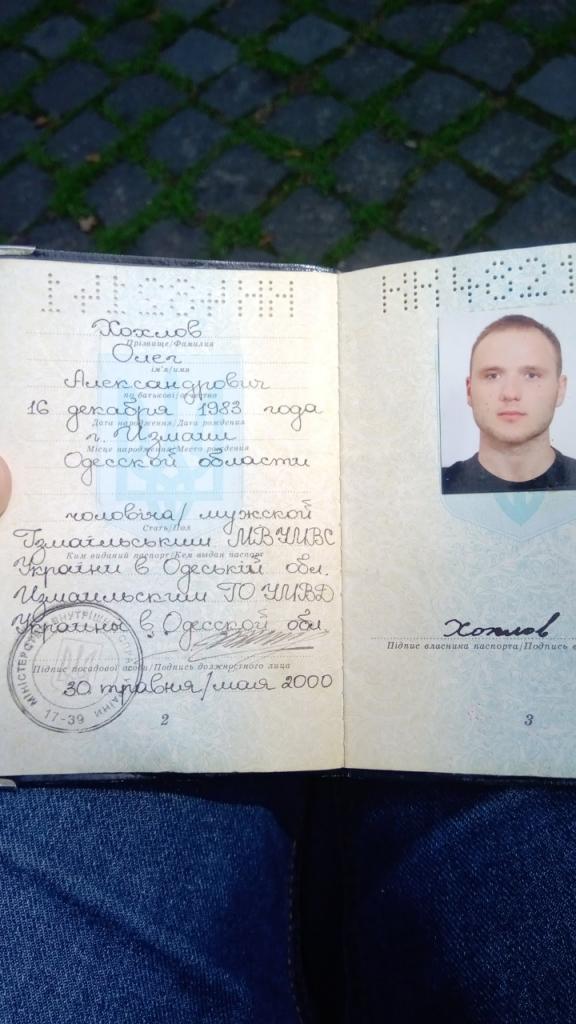 Хохлов
Прізвище/Фамилия
Олег
ім'я/имя
Александрович
по батькові/отчество
16 декабря 1983 года
Дата народження/Дата рождения
г. Измаил
Місце народження/Место рождения
Одесской области
чоловіча/мужской
Стать/Пол
Ізмаїльським МВ УМВС
Ким виданий паспорт/Кем выдан паспорт
України в Одеській обл.
Измаильским ГО УМВД
Украины в Одесской обл
Підпис посадової особи/Подпись должностного лица
30 травня/мая 2000
МІНІСТЕРСТВО ВНУТРІШНІХ СПРАВ УКРАЇНИ
17-39
2
НН4321
Хохлов
Підпис власника паспорта/Подпись в
3